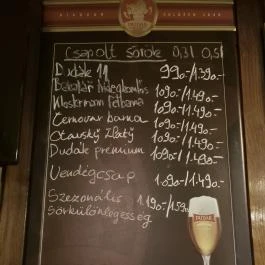 DUDÁK
Csapolt sörök 0,3l 0,5l
Dudák 11 990.-/1.390.-
Bakalář hidegkomlós 1090.-/1.490.-
Klostermann félbarna 1090.-/1.490.-
Černovar barna 1090.-/1.490.-
Otavský Zlatý 1090.-/1.490.-
Dudák premium 1090.-/1.490.-
Vendégcsap 1.090.-/1.490.-
Szezonális 1.190.-/1.590.-
Sörkülönlegesség
DUDÁK